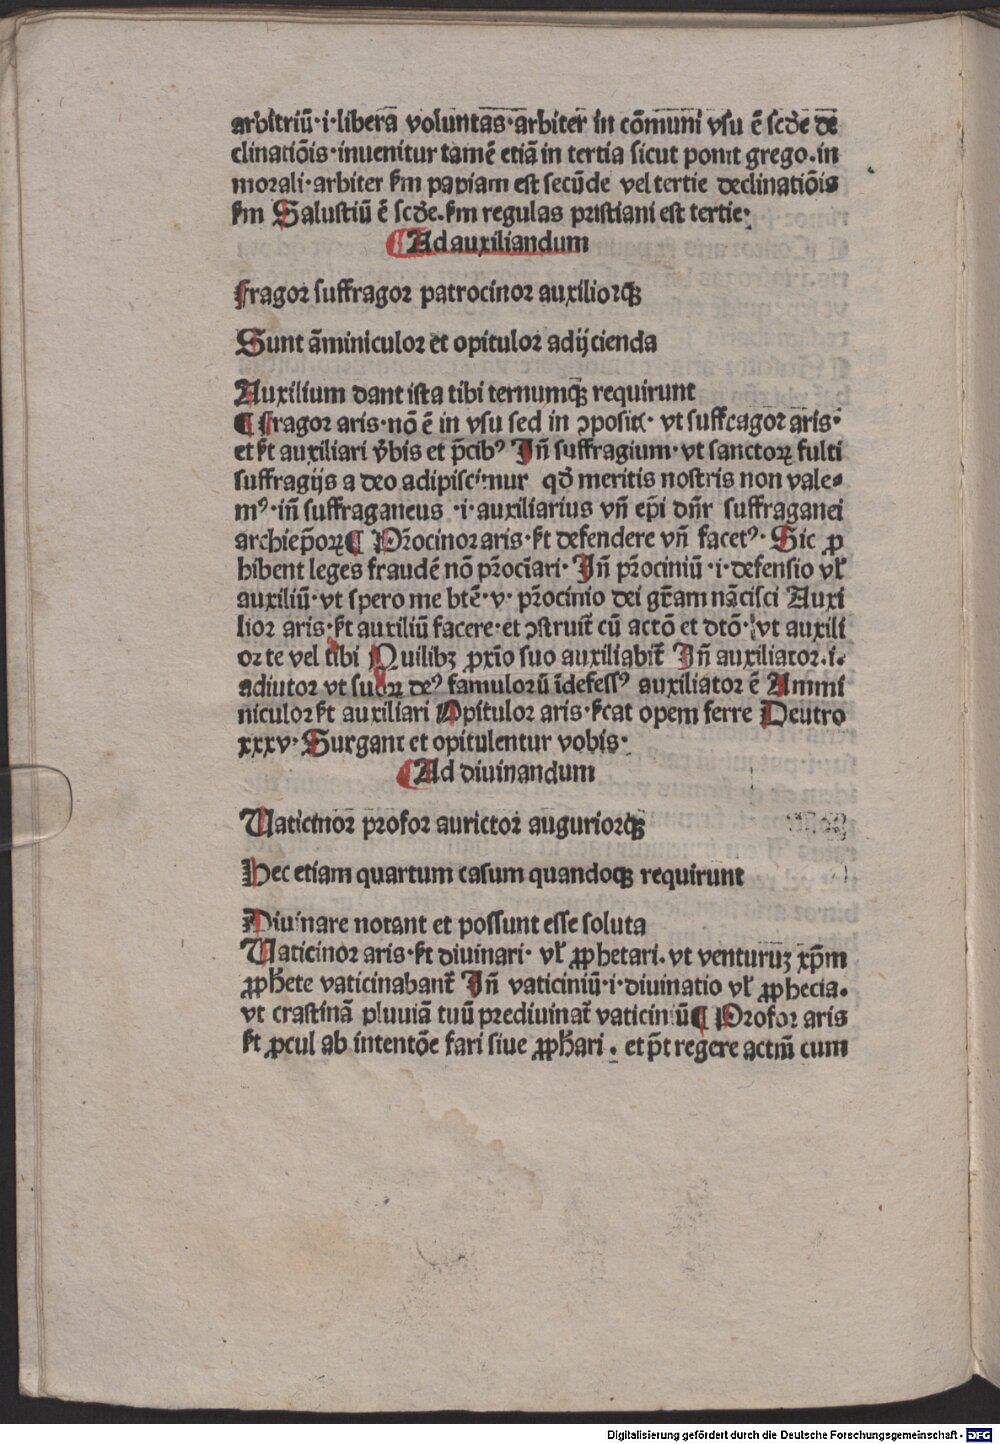 arbitriū·i·libera voluntas·arbiter in cōmuni vsu ē scd̄e de
clinatiōis·inuenitur tamē etiā in tertia sicut ponit grego.in
morali·arbiter ẜm papiam est secūde vel tertie declinatiōis
ẜm Salustiū ē scd̄e.ẜm regulas pristiani est tertie·
¶Ad auxiliandum
Fragor suffragor patrocinor auxiliorqꝫ
Sunt āminiculor et opitulor adijcienda
Auxilium dant ista tibi ternumqꝫ requirunt
¶ Fragor aris·nō ē in vsu sed in ꝯposit̄· vt suffragor aris·
et ẜt auxiliari v̄bis et p̄cibꝰ Iñ suffragium·vt sanctoꝝ fulti
suffragijs a deo adipiscimur qd̄ meritis nostris non vale⸗
mꝰ·iñ suffraganeus ·i·auxiliarius vñ ep̄i dn̄r suffraganei
archiep̄oꝝ¶ Pr̄ocinor aris·ẜt defendere vñ facetꝰ·Sic ꝓ
hibent leges fraudē nō pr̄ocīari·Iñ pr̄ociniū·i·defensio vl̄
auxiliū·vt spero me btē·v·pr̄ocinio dei gr̄am nācisci Auxi
lior aris·ẜt auxiliū facere·et ꝯstruit̄ cū actō et dtō·vt auxili
or te vel tibi Quilibꝫ ꝓxīo suo auxiliabit̄ Iñ auxiliator.i.
adiutor vt suoꝝ deꝰ famulorū īdefessꝰ auxiliator ē Ammi
niculor ẜt auxiliari Opitulor aris·ẜcat opem ferre Deutro
xxxv·Surgant et opitulentur vobis·
¶Ad diuinandum
Vaticinor profor aurictor auguriorqꝫ
Hec etiam quartum casum quandoqꝫ requirunt
Diuinare notant et possunt esse soluta
Vaticinor aris·ẜt diuinari· vl̄ ꝓphetari.vt venturuꝫ xp̄m
ꝓpħete vaticinabant̄ Iñ vaticiniū·i·diuinatio vl̄ ꝓphecia.
vt crastinā pluuiā tuū prediuinat̄ vaticiniū¶ Profor aris
ẜt ꝓcul ab intentōe fari siue ꝓpħari . et p̄t regere actm̄ cum
Digitalisierung gefördert durch die Deutsche Forschungsgemeinschaft - DFG